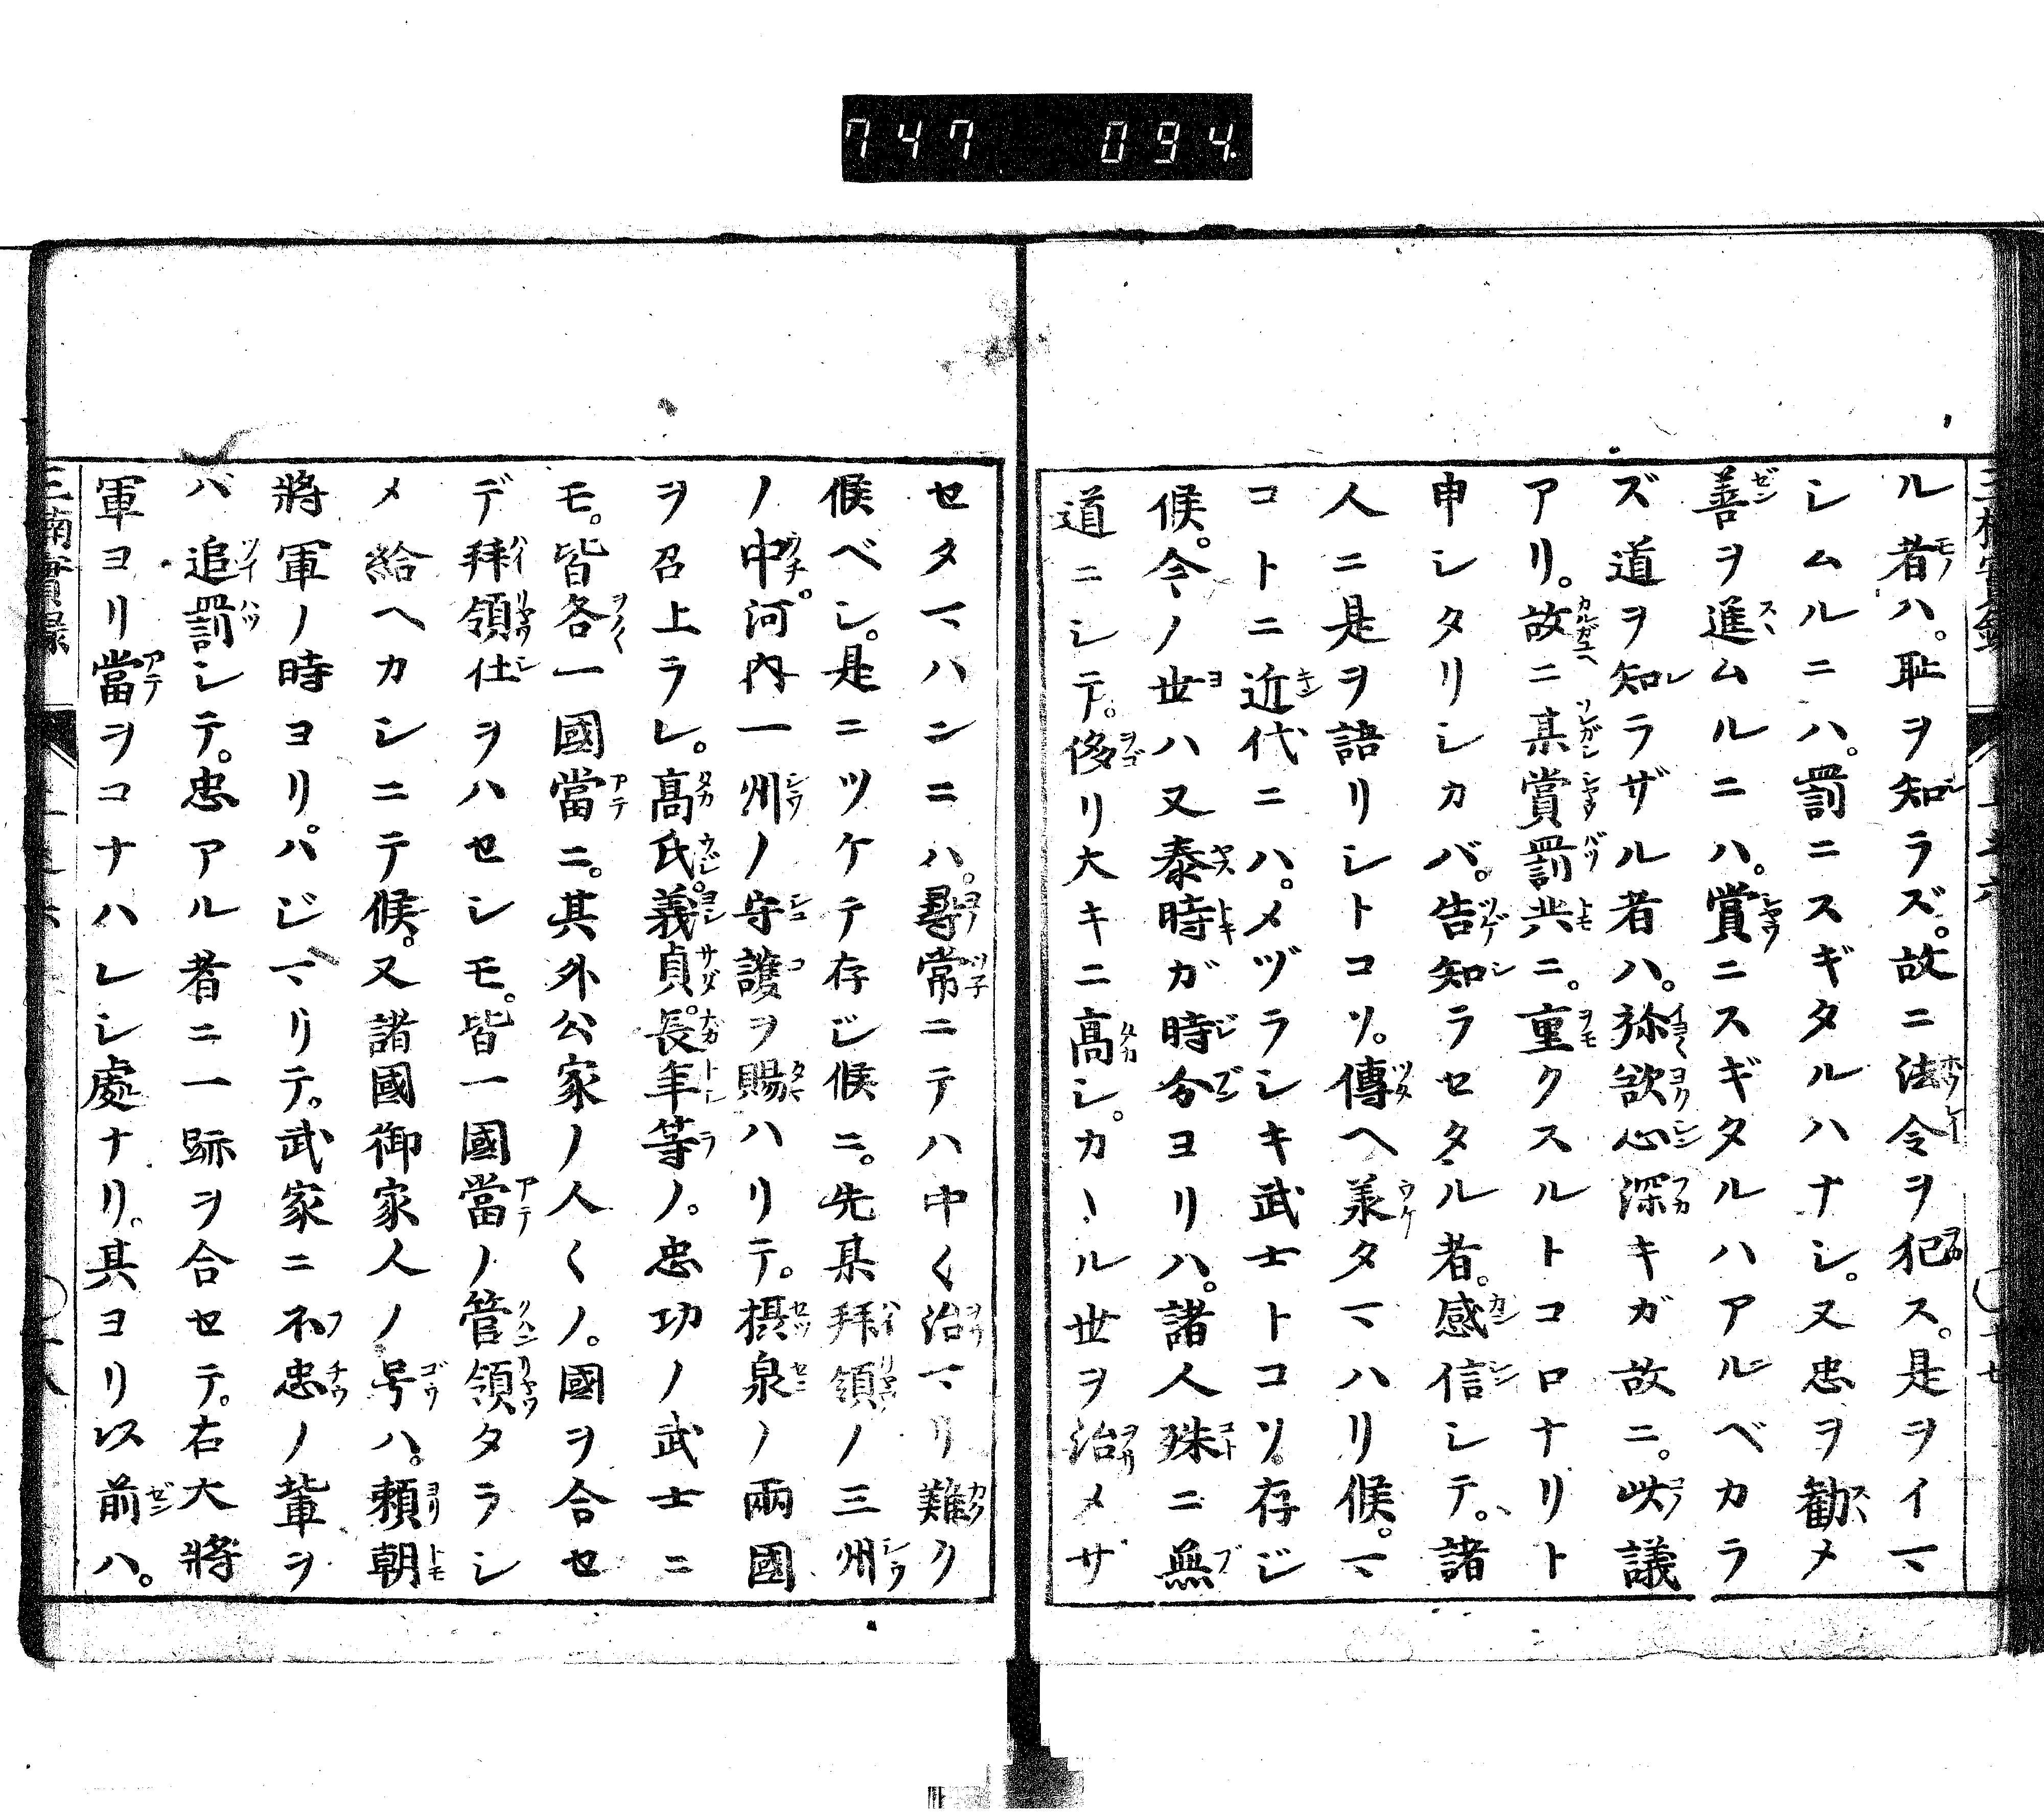 747 094
ル者ハ。耻ヲ知ラズ。故ニ法令ヲ犯ス。是ヲイマ
シムルニハ。罰ニスギタルハナシ。又忠ヲ勸メ
善ヲ進ムルニハ。賞ニスギタルハアルベカラ
ズ道ヲ知ラザル者ハ。弥欲心深キガ故ニ。此議
アリ。故ニ某賞罰共ニ。重クスルトコロナリト
申シタリシカバ。告知ラセタル者。感信シテ。諸
人ニ是ヲ語リシトコソ。傳ヘ羕タマハリ候。マ
コトニ近代ニハ。メヅラシキ武士トコソ。存ジ
候。今ノ世ハ又泰時ガ時分ヨリハ。諸人殊ニ無
道ニシテ。侈リ大キニ高シ。カヽル世ヲ治メサ
セタマハンニハ。尋常ニテハ中〱治マリ難ク
候ベシ。是ニツケテ存ジ候ニ。先某拜領ノ三州
ノ中。河内一州ノ守護ヲ賜ハリテ。摂泉ノ兩國
ヲ召上ラレ。髙氏。義貞。長年等ノ。忠功ノ武士ニ
モ。皆各一國當ニ。其外公家ノ人〱ノ。國ヲ合セ
デ拜領仕ヲハセシモ。皆一國當ノ管領タラシ
メ給ヘカシニテ候。又諸國御家人ノ号ハ。頼朝
將軍ノ時ヨリ。ハジマリテ。武家ニ不忠ノ輩ヲ
バ追罰シテ。忠アル者ニ一跡ヲ合セテ。右大將
軍ヨリ當ヲコナハレシ處ナリ。其ヨリ以前ハ。